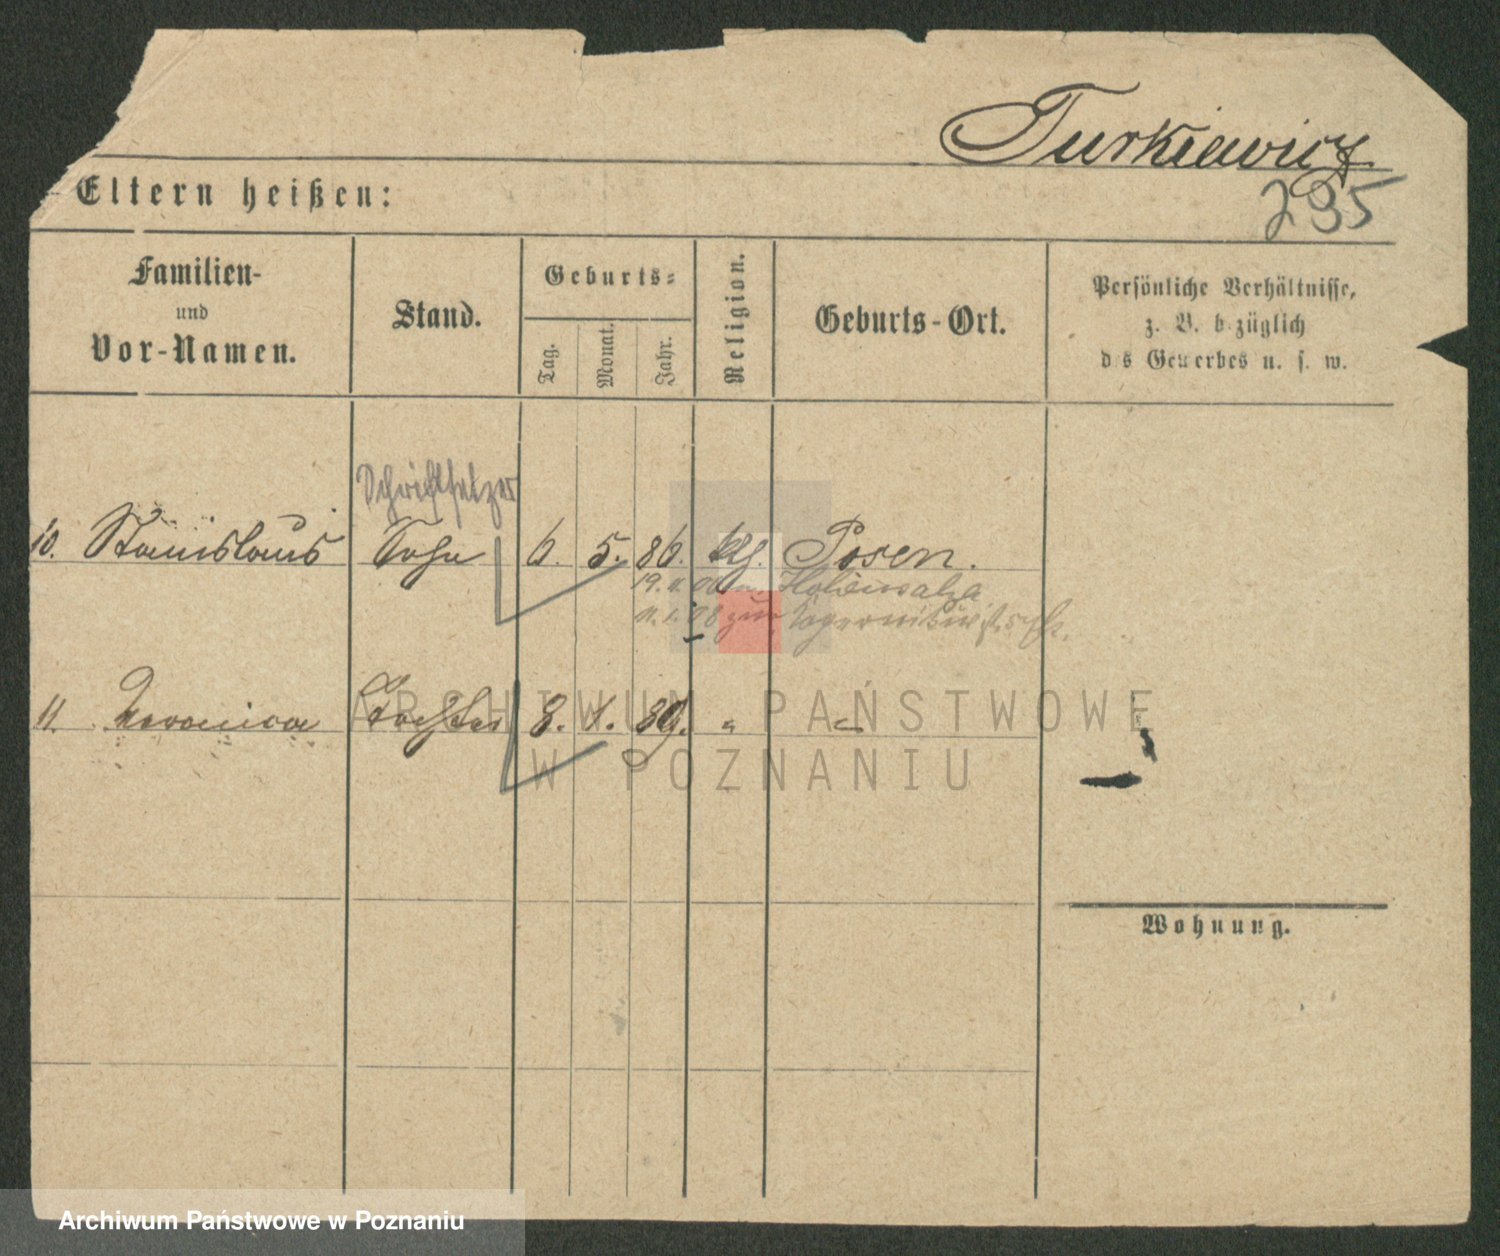 Turkiewicz
235
Eltern heißen:
Familien-
und
Vor-Namen.
Stand.
Geburts-
Tag.
Monat.
Jahr.
Religion.
Geburts-Ort.
Persönliche Verhältnisse,
z. B. bezüglich
des Gewerbes u. s. w.
Schriftsetzer
10. Stanislaus Sohn 6. 5. 86. klg. Posen.
19. 11. Hohensalza
11. 1. 08 zur
11. Veronica Tochter 8. 1. 89. " "
ARCHIWUM PAŃSTWOWE
W POZNANIU
Wohnung.
Archiwum Państwowe w Poznaniu